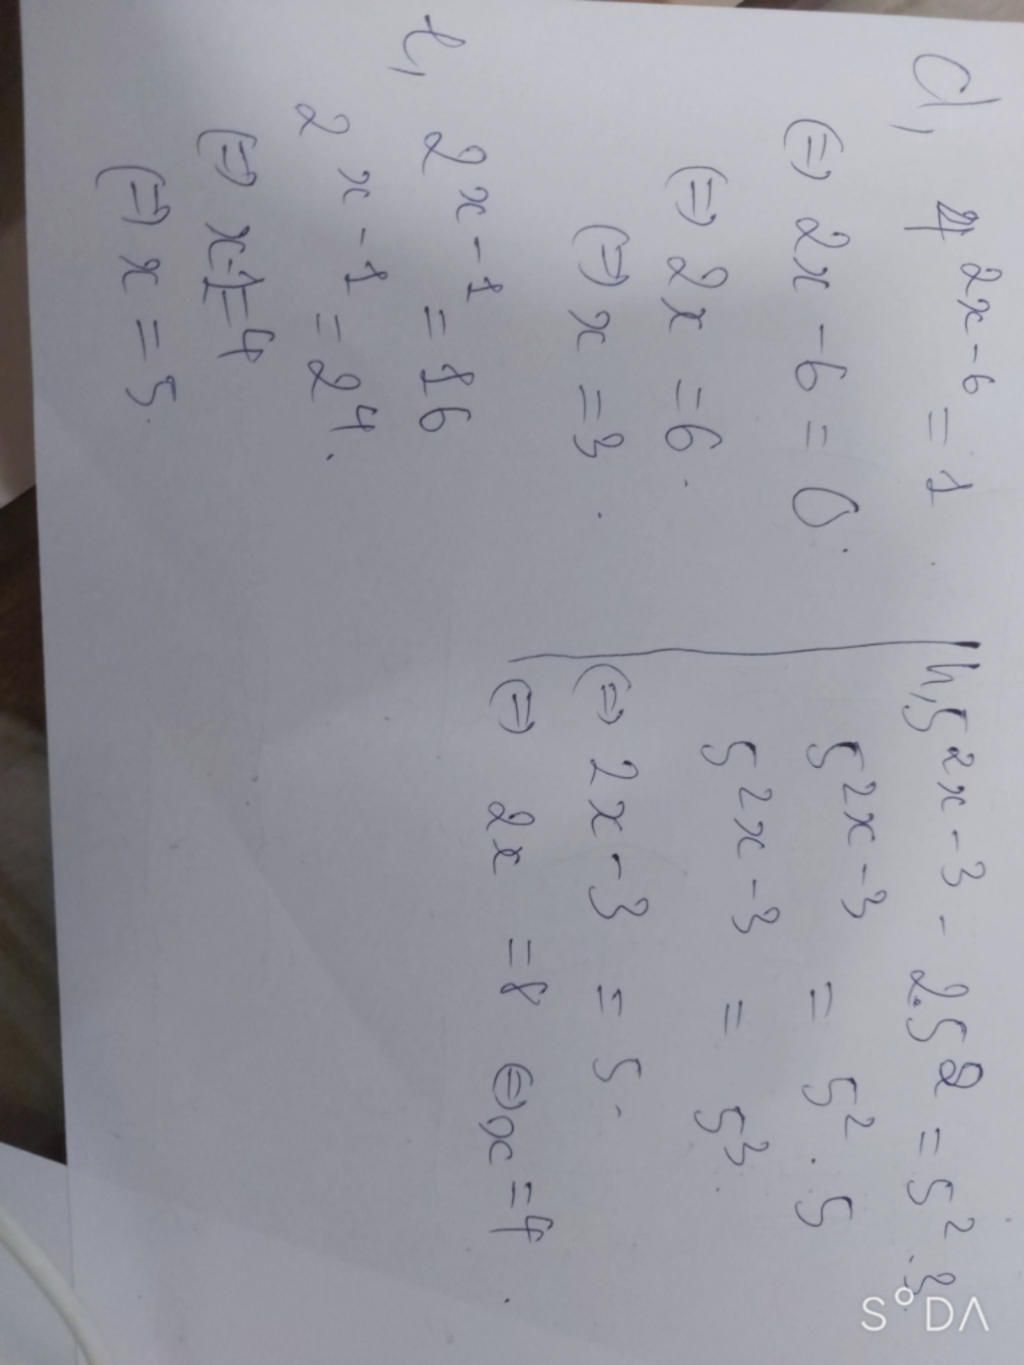 d, 4^{2x-6} = 1.
(=) 2x - 6 = 0.
(=) 2x = 6.
(=) x = 3.
t, 2^{x-1} = 16
2^{x-1} = 2^4.
(=) x-1=4
(=) x = 5.
h, 5^{2x-3} - 2.5^2 = 5^2.3
5^{2x-3} = 5^2.5
5^{2x-3} = 5^3.
(=) 2x - 3 = 5.
(=) 2x = 8 (=) x = 4.
S°DA